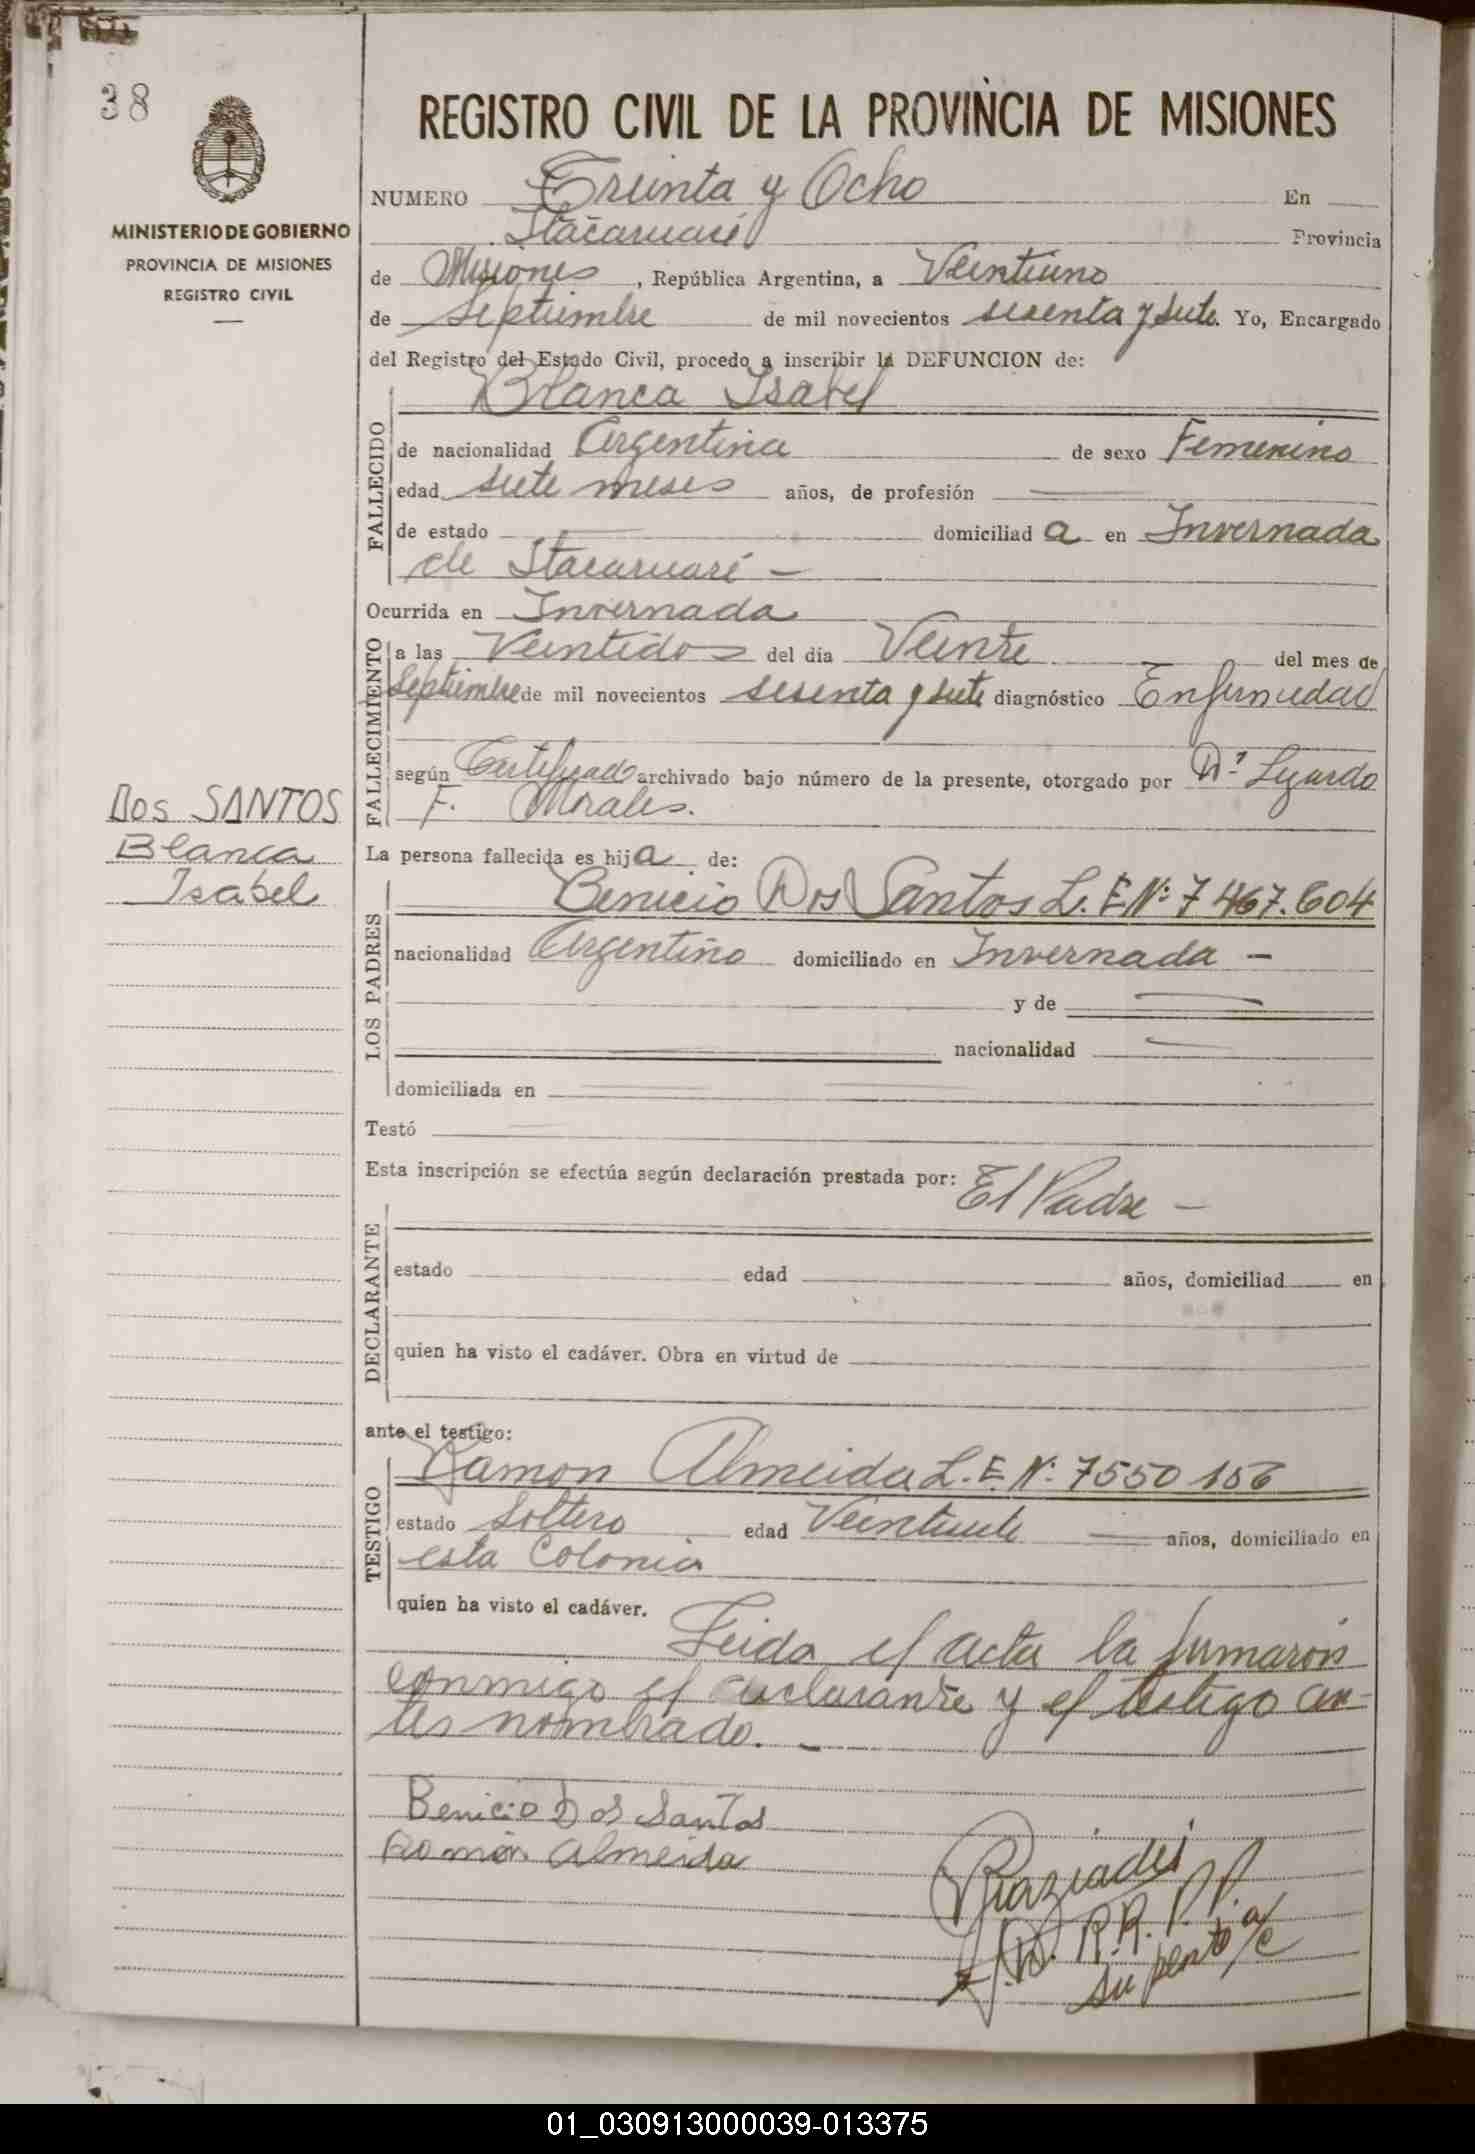 38
MINISTERIO DE GOBIERNO
PROVINCIA DE MISIONES
REGISTRO CIVIL
Dos SANTOS
Blanca
Isabel
REGISTRO CIVIL DE LA PROVINCIA DE MISIONES
NUMERO Treinta y Ocho En
Itacaruaré Provincia
de Misiones, República Argentina, a Veintiuno
de Septiembre de mil novecientos sesenta y siete. Yo, Encargado
del Registro del Estado Civil, procedo a inscribir la DEFUNCION de:
Blanca Isabel
FALLECIDO
de nacionalidad Argentina de sexo Femenino
edad siete meses años, de profesión
de estado domiciliad a en Invernada
de Itacaruaré -
Ocurrida en Invernada
FALLECIMIENTO
a las Veintidos del día Veinte del mes de
Septiembre de mil novecientos sesenta y siete diagnóstico Enfermedad
según Certificado archivado bajo número de la presente, otorgado por Dr. Lizardo
F. Morales.
La persona fallecida es hija de:
LOS PADRES
Benicio Dos Santos L.E Nº 7467.604
nacionalidad Argentino domiciliado en Invernada -
y de
nacionalidad
domiciliada en
Testó
Esta inscripción se efectúa según declaración prestada por: El Padre -
DECLARANTE
estado edad años, domiciliad en
quien ha visto el cadáver. Obra en virtud de
ante el testigo:
TESTIGO
Ramon Almeida L.E. Nº 7550156
estado Soltero edad Veintisiete años, domiciliado en
esta Colonia
quien ha visto el cadáver.
Leida el acta la firmaron
conmigo el declarante y el testigo an-
tes nombrado. -
Benicio Dos Santos
Ramón Almeida
R.R. P.P.
Suplente a/c
01_030913000039-013375